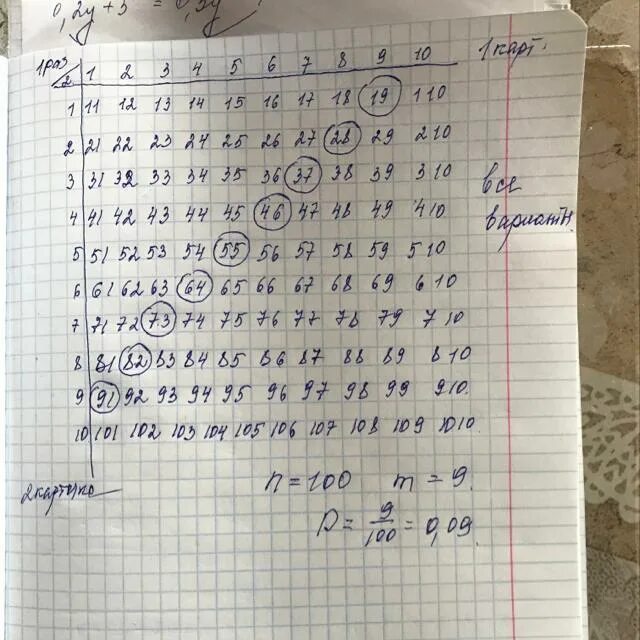 0,2y + 3 =
1 2 3 4 5 6 7 8 9 10 1 карт.
1 11 12 13 14 15 16 17 18 19 110
2 21 22 23 24 25 26 27 28 29 210
3 31 32 33 34 35 36 37 38 39 310 все
4 41 42 43 44 45 46 47 48 49 410 варианты
5 51 52 53 54 55 56 57 58 59 510
6 61 62 63 64 65 66 67 68 69 610
7 71 72 73 74 75 76 77 78 79 710
8 81 82 83 84 85 86 87 88 89 810
9 91 92 93 94 95 96 97 98 99 910.
10 101 102 103 104 105 106 107 108 109 1010.
2 карточка n = 100 m = 9.
P = 9/100 = 0,09.